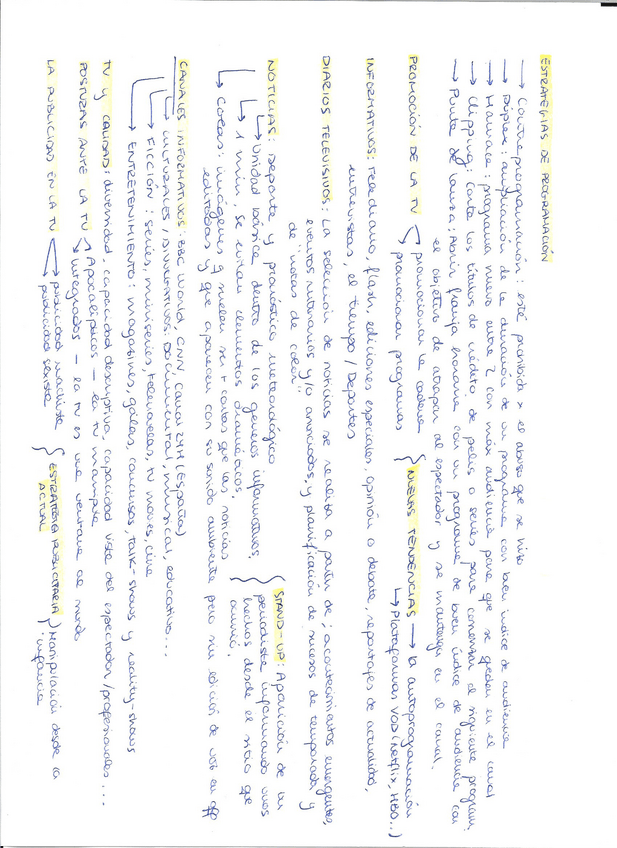 ESTRATEGIAS DE PROGRAMACIÓN
→ Contraprogramación: está prohibida x el abuso que se hizo
→ Dúplex: ampliación de la duración de un programa con buen índice de audiencia
→ Hamaca: programa nuevo entre 2 con más audiencia para que se queden en el canal
→ Clipping: Corta los títulos de crédito de pelis o series para comenzar el siguiente program.
→ Punta de lanza: Abrir franja horaria con un programa de buen índice de audiencia con
el objetivo de atrapar al espectador y se mantenga en el canal.
PROMOCIÓN DE LA TV → promocionar la cadena
→ promocionar programas
NUEVAS TENDENCIAS → la autoprogramación
→ Plataformas VOD (Netflix, HBO...)
INFORMATIVOS: Telediario, flash, ediciones especiales, opinión o debate, reportajes de actualidad,
entrevistas, el tiempo / Deportes
DIARIOS TELEVISIVOS: La selección de noticias se realiza a partir de: acontecimientos emergentes
eventos rutinarios y/o anunciados, y planificación de sucesos de temporada y
de "notas de color".
NOTICIAS: Deporte y pronóstico meteorológico
→ Unidad básica dentro de los géneros informativos
→ 1 min, se evitan elementos dramáticos
→ Colas: imágenes q suelen ser + cortas que las noticias
editadas y que aparecen con su sonido ambiente pero sin edición de voz en off
STAND-UP: Aparición de un
periodista informando unos
hechos desde el sitio que
ocurrió.
CANALES INFORMATIVOS: BBC World, CNN, Canal 24H (España)
→ CULTURALES / DIVULGATIVOS: Documental, musical, educativo...
→ FICCIÓN: series, miniseries, telenovelas, tv movies, cine
→ ENTRETENIMIENTO: magazines, galas, concursos, talk-shows y reality-shows
TV y CALIDAD: diversidad, capacidad descriptiva, capacidad vista del espectador/profesionales...
POSTURAS ANTE LA TV → Apocalípticos – la tv manipula
→ Integrados – la tv es una ventana al mundo
LA PUBLICIDAD EN LA TV → publicidad machista
→ publicidad sexista
ESTRATEGIA PUBLICITARIA
ACTUAL
Manipulación desde la
infancia